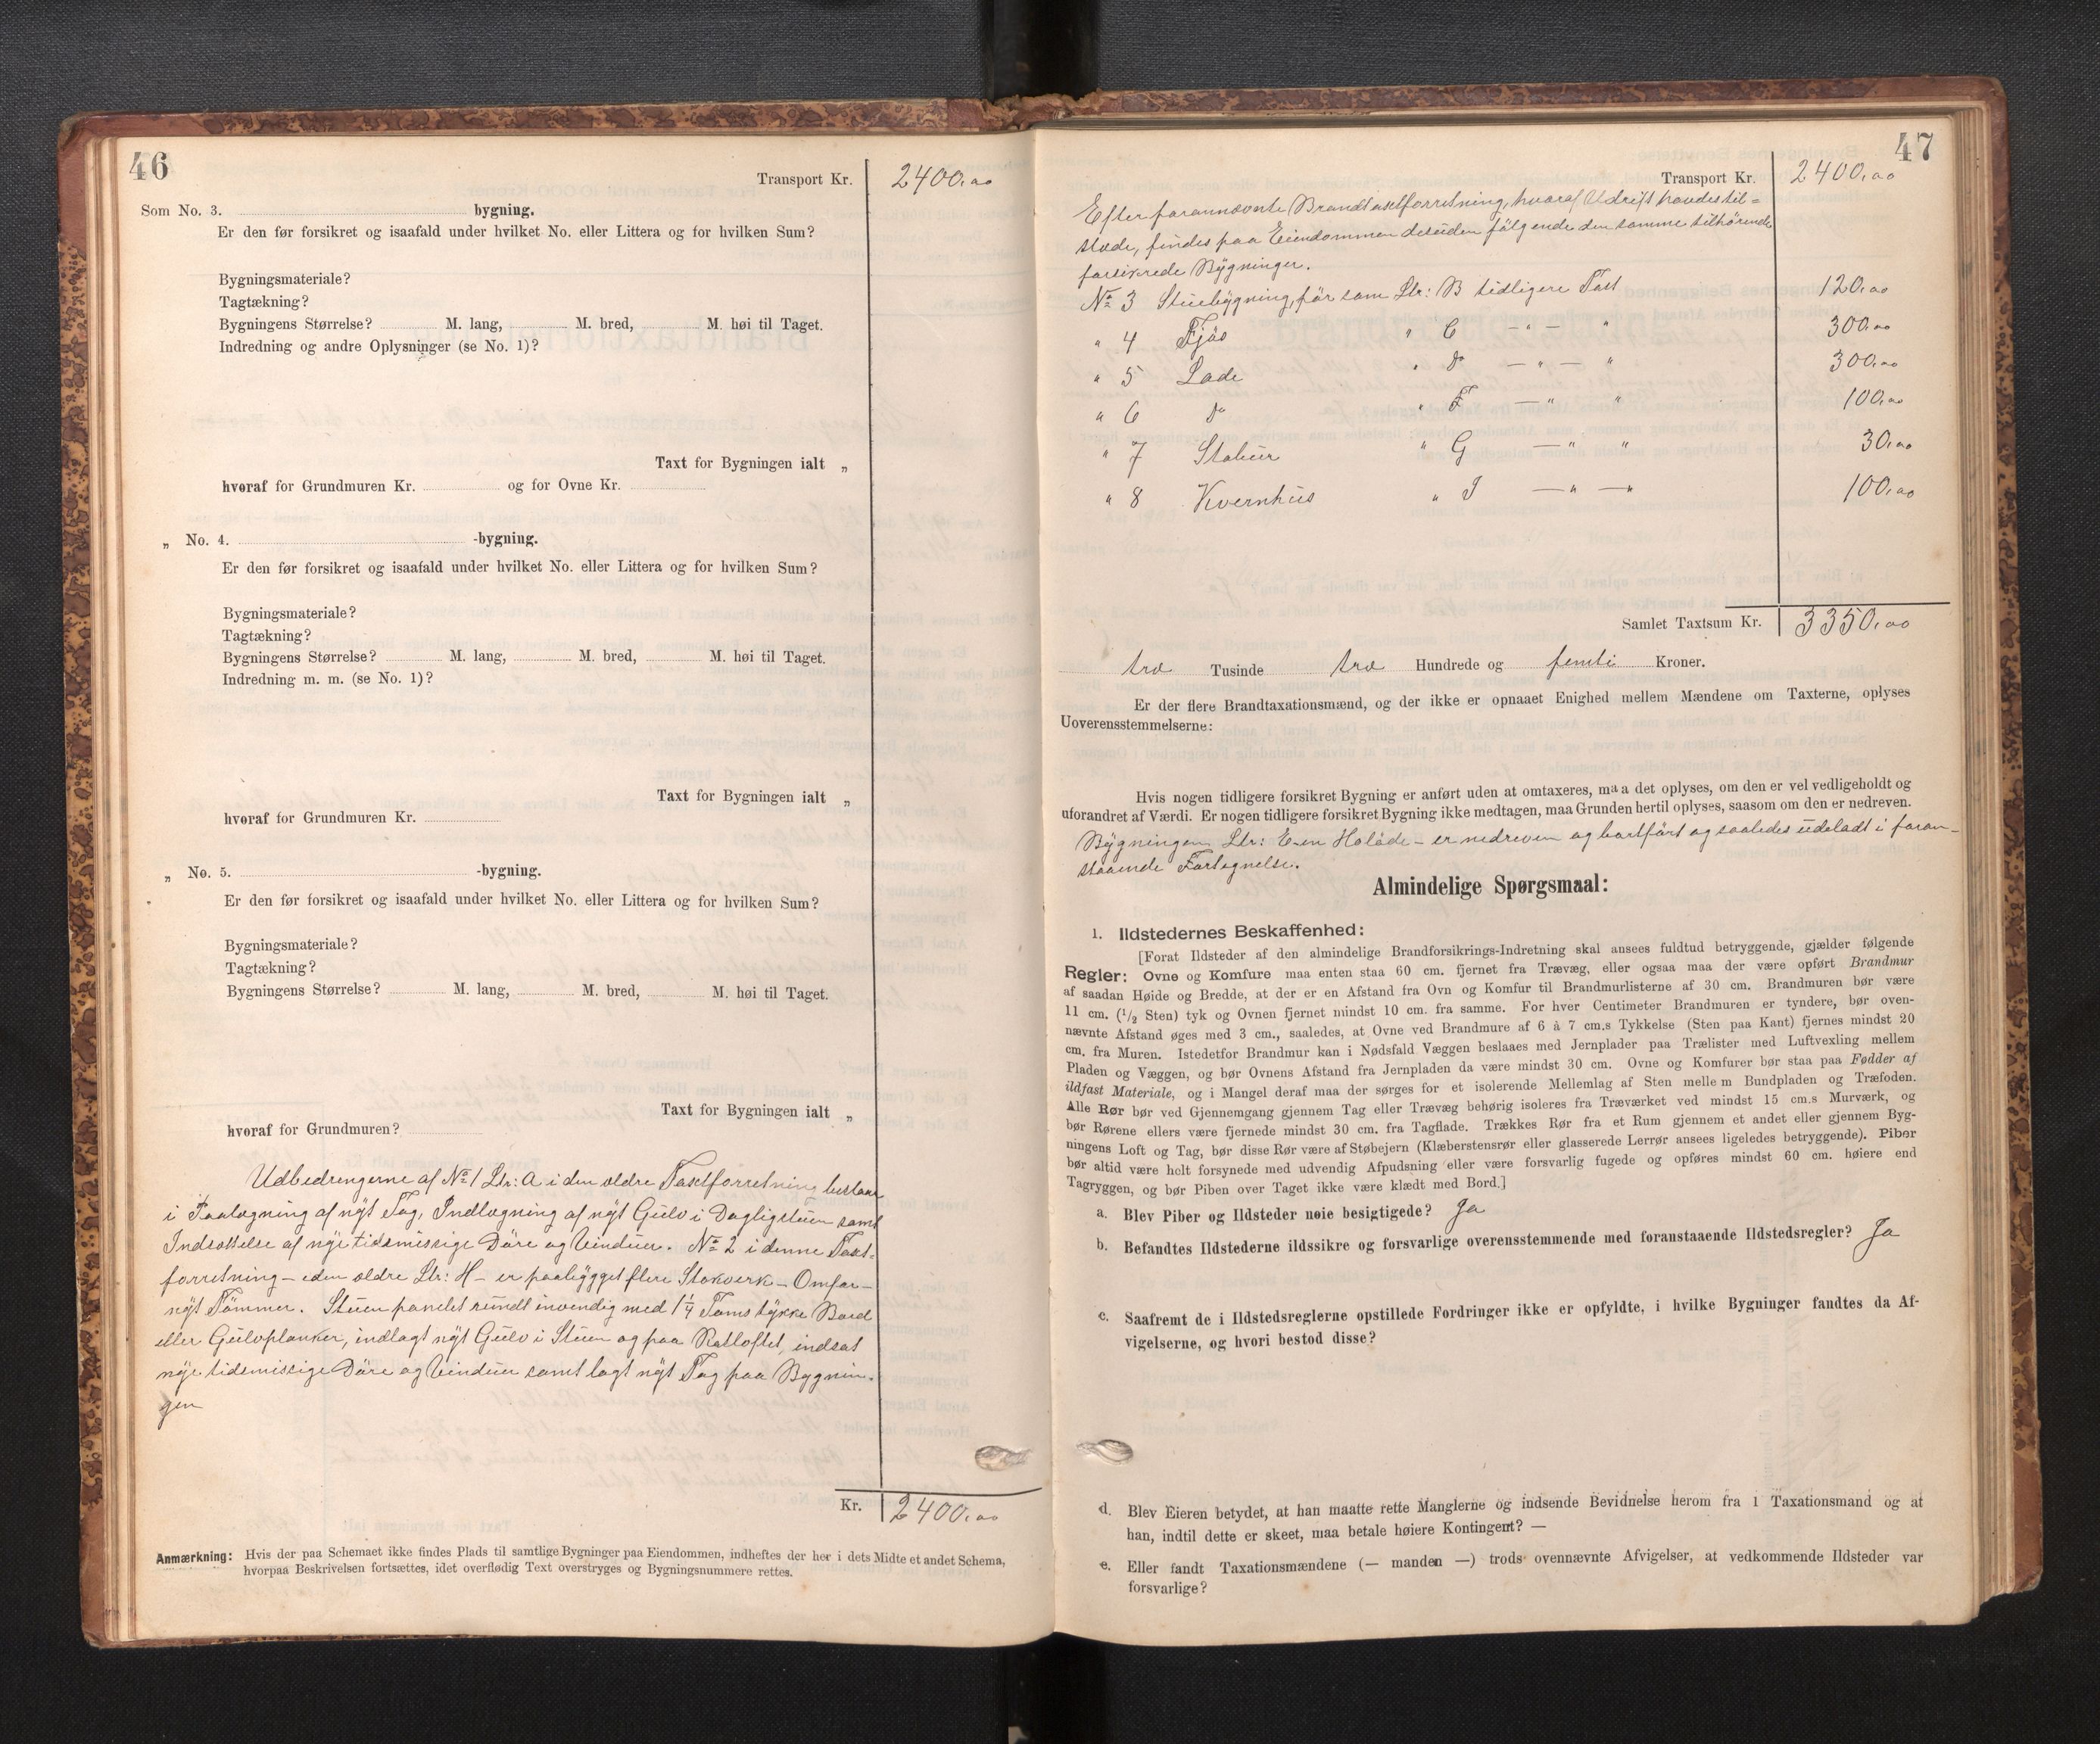 46
Transport Kr. 2400,00
Som No. 3. bygning.
Er den før forsikret og isaafald under hvilket No. eller Littera og for hvilken Sum?
Bygningsmateriale?
Tagtækning?
Bygningens Størrelse? M. lang, M. bred, M. høi til Taget.
Indredning og andre Oplysninger (se No. 1)?
Taxt for Bygningen ialt „
hvoraf for Grundmuren Kr. og for Ovne Kr.
„ No. 4. -bygning.
Er den før forsikret og isaafald under hvilket No. eller Littera og for hvilken Sum?
Bygningsmateriale?
Tagtækning?
Bygningens Størrelse? M. lang, M. bred, M. høi til Taget.
Indredning m. m. (se No. 1)?
Taxt for Bygningen ialt „
hvoraf for Grundmuren Kr.
„ No. 5. -bygning.
Er den før forsikret og isaafald under hvilket No. eller Littera og for hvilken Sum?
Bygningsmateriale?
Tagtækning?
Bygningens Størrelse? M. lang, M. bred, M. høi til Taget.
Taxt for Bygningen ialt „
hvoraf for Grundmuren?
Udbedringerne af No 1 Ltr: A i den ældre Taxtforretning bestaar
i Paalægning af nyt Tag, Indlægning af nyt Gulv i Dagligstuen samt
Indsættelse af nye tidsmæssige Döre og Vinduer. No 2 i denne Taxt-
forretning – i den ældre Ltr: H – er paabygget flere Stokverk – Omfar –
nyt Tömmer. Stuen panelet rundt invendig med 1¼ Toms tykke Bord
eller Gulvplanker, indlagt nyt Gulv i Stuen og paa loftet, indsat
nye tidsmæssige Döre og Vinduer samt lagt nyt Tag paa Bygnin-
gen
Kr. 2400,00
Anmærkning: Hvis der paa Schemaet ikke findes Plads til samtlige Bygninger paa Eiendommen, indheftes der her i dets Midte et andet Schema,
hvorpaa Beskrivelsen fortsættes, idet overflødig Text overstryges og Bygningsnummere rettes.
47
Transport Kr. 2400,00
Efter forannævnte Brandtaxtforretning, hvoraf Udskrift havdes til-
stæde, findes paa Eiendommen desuden fölgende den samme tilhörende
forsikrede Bygninger.
No 3 Stuebygning, för som Ltr: B tidligere Taxt 120,00
" 4 Fjös " C — " — " 300,00
" 5 Lade " D — " — " 300,00
" 6 do " F — " " 100,00
" 7 Stabur " G — " " 30,00
" 8 Kvernhus " I — " — " 100,00
Samlet Taxtsum Kr. 3350,00
tre Tusinde tre Hundrede og femti Kroner.
Er der flere Brandtaxationsmænd, og der ikke er opnaaet Enighed mellem Mændene om Taxterne, oplyses
Uoverensstemmelserne:
Hvis nogen tidligere forsikret Bygning er anført uden at omtaxeres, maa det oplyses, om den er vel vedligeholdt og
uforandret af Værdi. Er nogen tidligere forsikret Bygning ikke medtagen, maa Grunden hertil oplyses, saasom om den er nedreven.
Bygningen Ltr: E – en Hölade – er nedreven og bortfört og saaledes udeladt i foran-
staaende Fortegnelse.
Almindelige Spørgsmaal:
1. Ildstedernes Beskaffenhed:
[Forat Ildsteder af den almindelige Brandforsikrings-Indretning skal ansees fuldtud betryggende, gjælder følgende
Regler: Ovne og Komfure maa enten staa 60 cm. fjernet fra Trævæg, eller ogsaa maa der være opført Brandmur
af saadan Høide og Bredde, at der er en Afstand fra Ovn og Komfur til Brandmurlisterne af 30 cm. Brandmuren bør være
11 cm. (1/2 Sten) tyk og Ovnen fjernet mindst 10 cm. fra samme. For hver Centimeter Brandmuren er tyndere, bør oven-
nævnte Afstand øges med 3 cm., saaledes, at Ovne ved Brandmure af 6 à 7 cm.s Tykkelse (Sten paa Kant) fjernes mindst 20
cm. fra Muren. Istedetfor Brandmur kan i Nødsfald Væggen beslaaes med Jernplader paa Trælister med Luftvexling mellem
Pladen og Væggen, og bør Ovnens Afstand fra Jernpladen da være mindst 30 cm. Ovne og Komfurer bør staa paa Fødder af
ildfast Materiale, og i Mangel deraf maa der sørges for et isolerende Mellemlag af Sten mellem Bundpladen og Træfoden.
Alle Rør bør ved Gjennemgang gjennem Tag eller Trævæg behørig isoleres fra Træværket ved mindst 15 cm.s Murværk, og
bør Rørene ellers være fjernede mindst 30 cm. fra Tagflade. Trækkes Rør fra et Rum gjennem et andet eller gjennem Byg-
ningens Loft og Tag, bør disse Rør være af Støbejern (Klæberstensrør eller glasserede Lerrør ansees ligeledes betryggende). Piber
bør altid være helt forsynede med udvendig Afpudsning eller være forsvarlig fugede og opføres mindst 60 cm. høiere end
Tagryggen, og bør Piben over Taget ikke være klædt med Bord.]
a. Blev Piber og Ildsteder nøie besigtigede? Ja
b. Befandtes Ildstederne ildssikre og forsvarlige overensstemmende med foranstaaende Ildstedsregler? Ja
c. Saafremt de i Ildstedsreglerne opstillede Fordringer ikke er opfyldte, i hvilke Bygninger fandtes da Af-
vigelserne, og hvori bestod disse?
d. Blev Eieren betydet, at han maatte rette Manglerne og indsende Bevidnelse herom fra 1 Taxationsmand og at
han, indtil dette er skeet, maa betale høiere Kontingent? —
e. Eller fandt Taxationsmændene (— manden —) trods ovennævnte Afvigelser, at vedkommende Ildsteder var
forsvarlige?